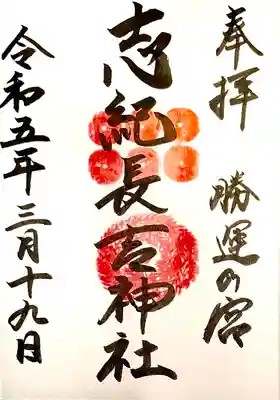 奉拝
勝運の宮
志紀長吉神社
令和五年三月十九日